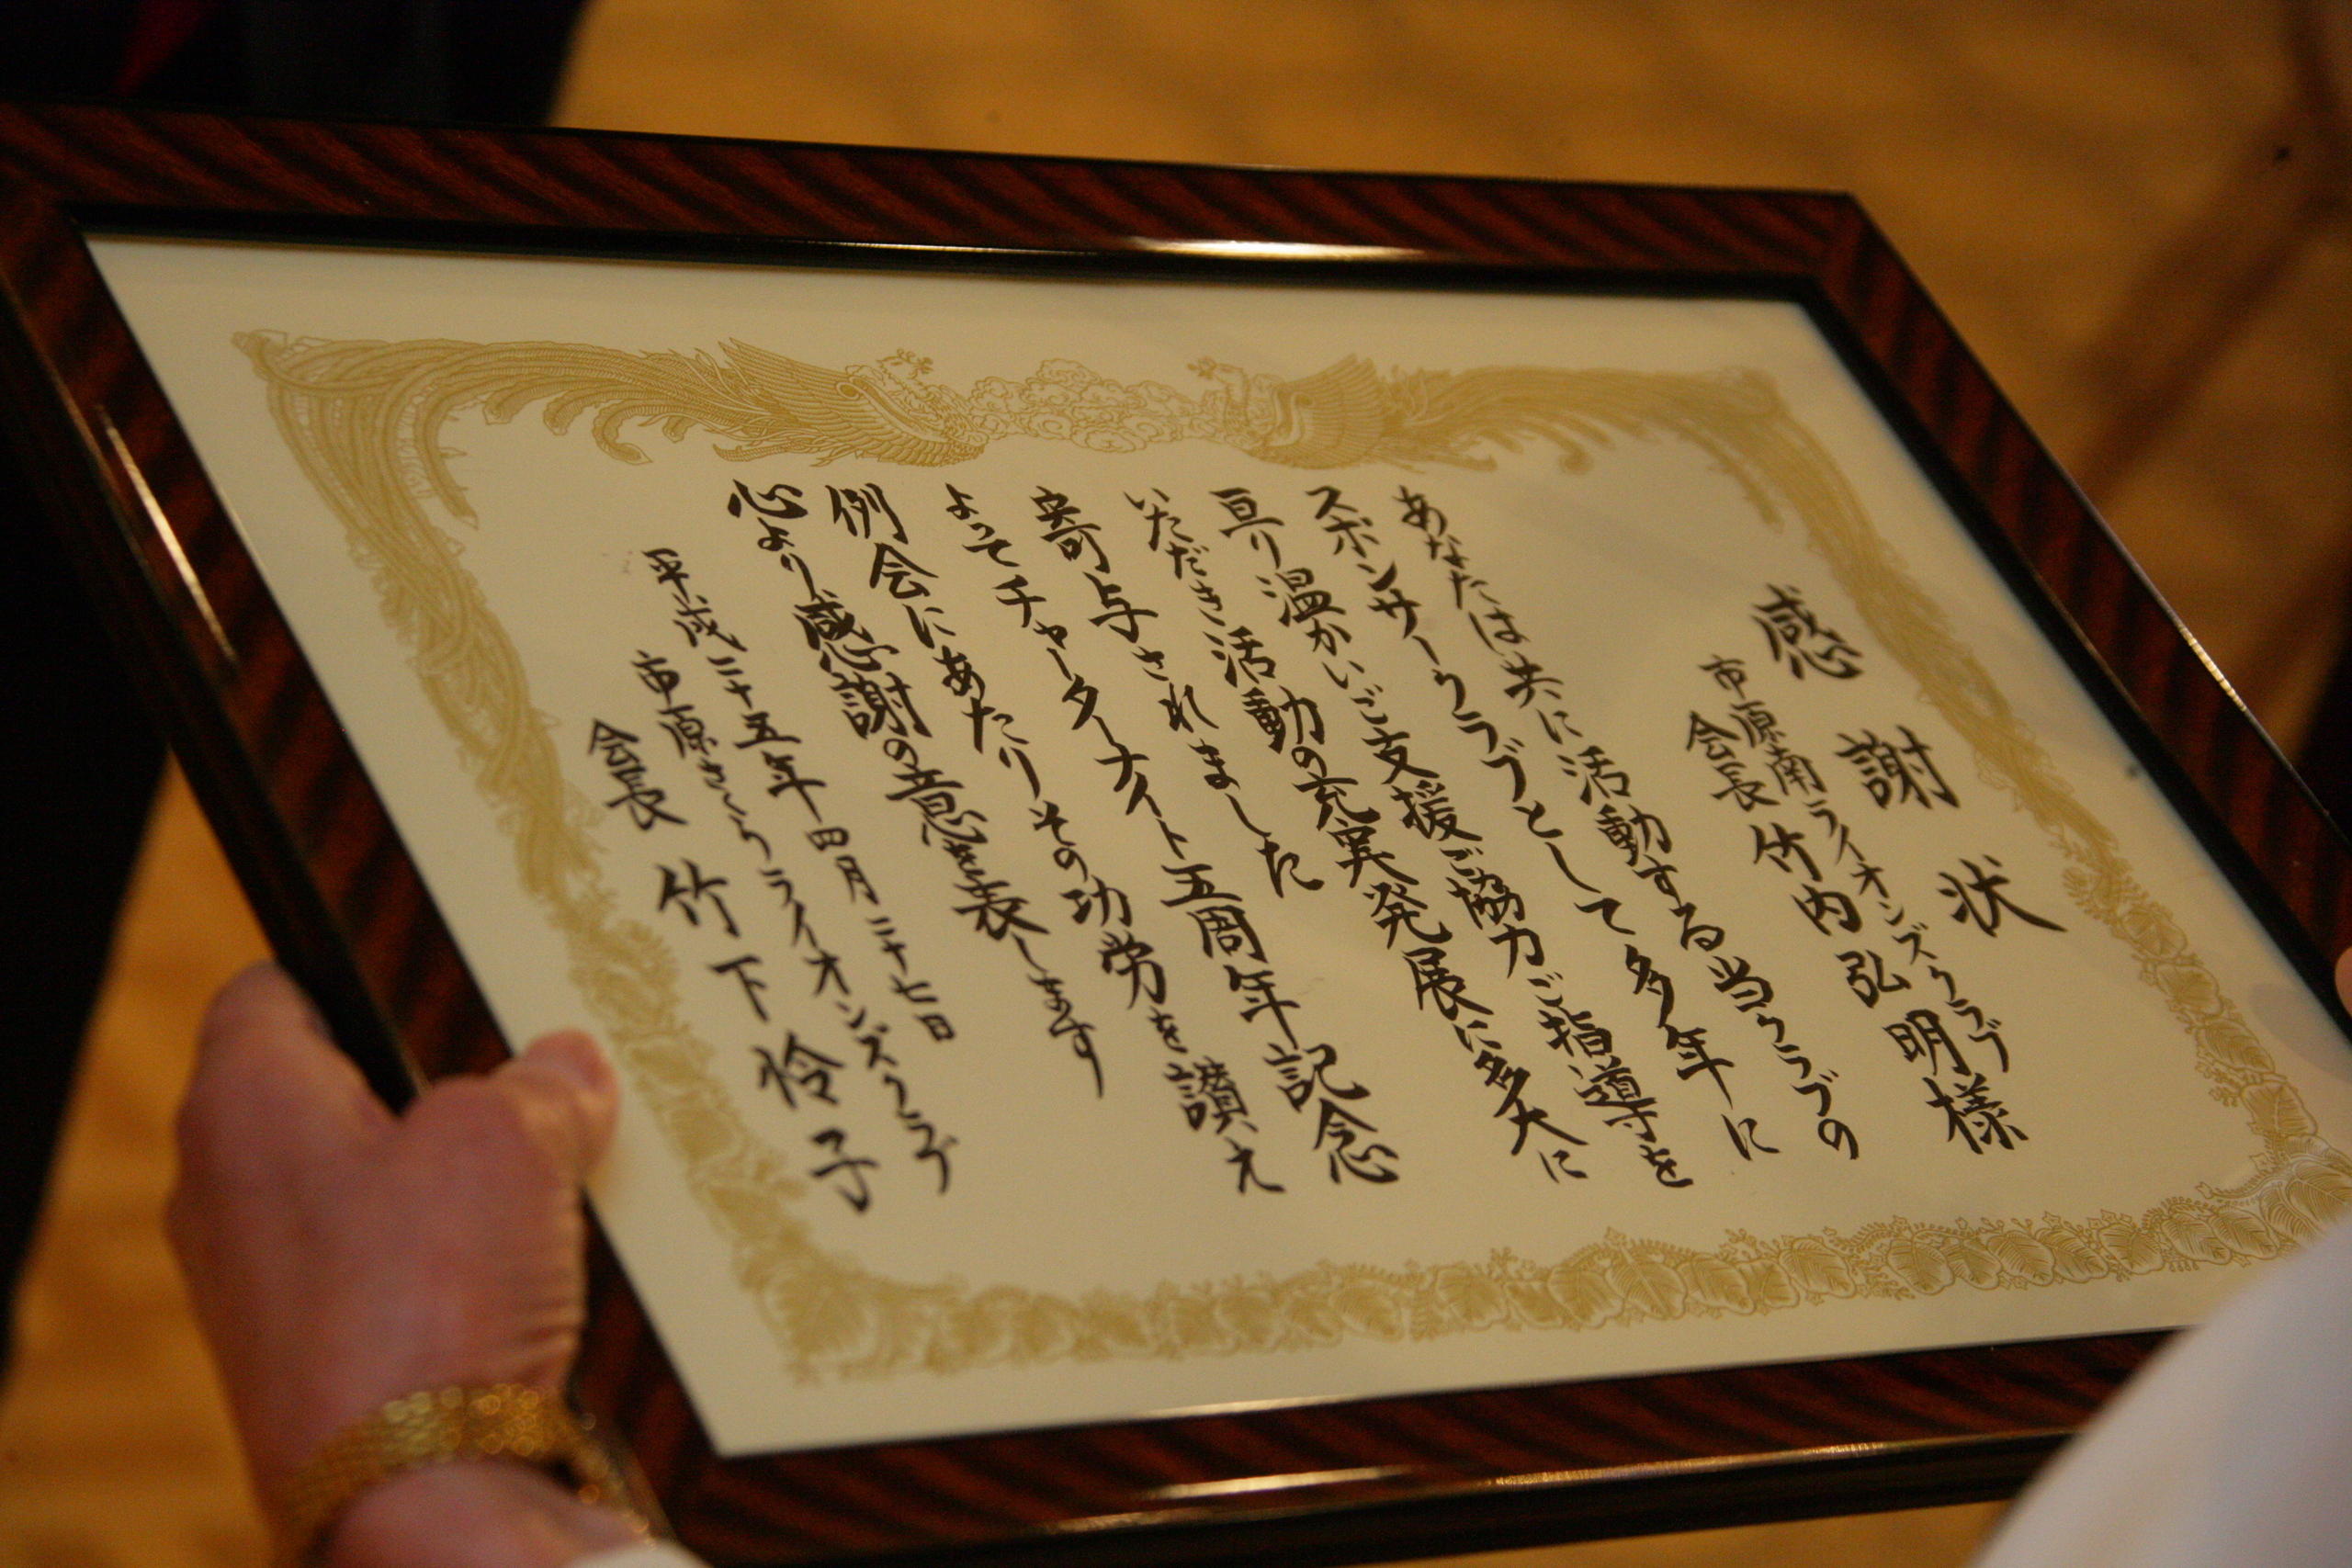 感謝状
市原南ライオンズクラブ
会長 竹内弘明様
あなたは共に活動する当クラブの
スポンサークラブとして多年に
亘り温かいご支援ご協力ご指導を
いただき活動の充実発展に多大に
寄与されました
よってチャーターナイト五周年記念
例会にあたりその功労を讃え
心より感謝の意を表します
平成二十五年四月二十七日
市原さくらライオンズクラブ
会長 竹下怜子